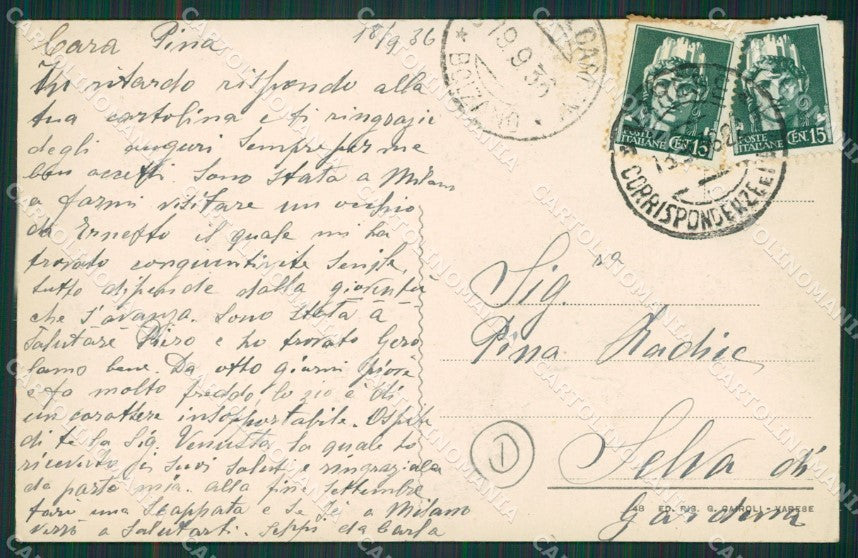 Cara Pina 18/9 36
In ritardo rispondo alla
tua cartolina e ti ringrazio
degli auguri sempre per me
ben accetti. Sono stata a Milano
a farmi visitare un occhio
da Ernesto il quale mi ha
trovato congiuntivite senile,
tutto dipende dalla gioventù
che s'avanza. Sono stata a
salutare Piero e ho trovato Gero
lamo bene. Da otto giorni piove
e fa molto freddo lo zio è di
un carattere insopportabile. Ospite
di te la Sig. Venusta la quale ho
ricevuto i suoi saluti e ringraziala
da parte mia. Alla fine settembre
farò una scappata e se sei a Milano
verrò a salutarti. da Carla
Sig.ra
Pina
Selva di
Gardena
1
48 ED. RIS. G. CAIROLI - VARESE
POSTE ITALIANE CEN. 15
POSTE ITALIANE CEN. 15
18.9.36
CORRISPONDENZE
CARTOLINOMANIA